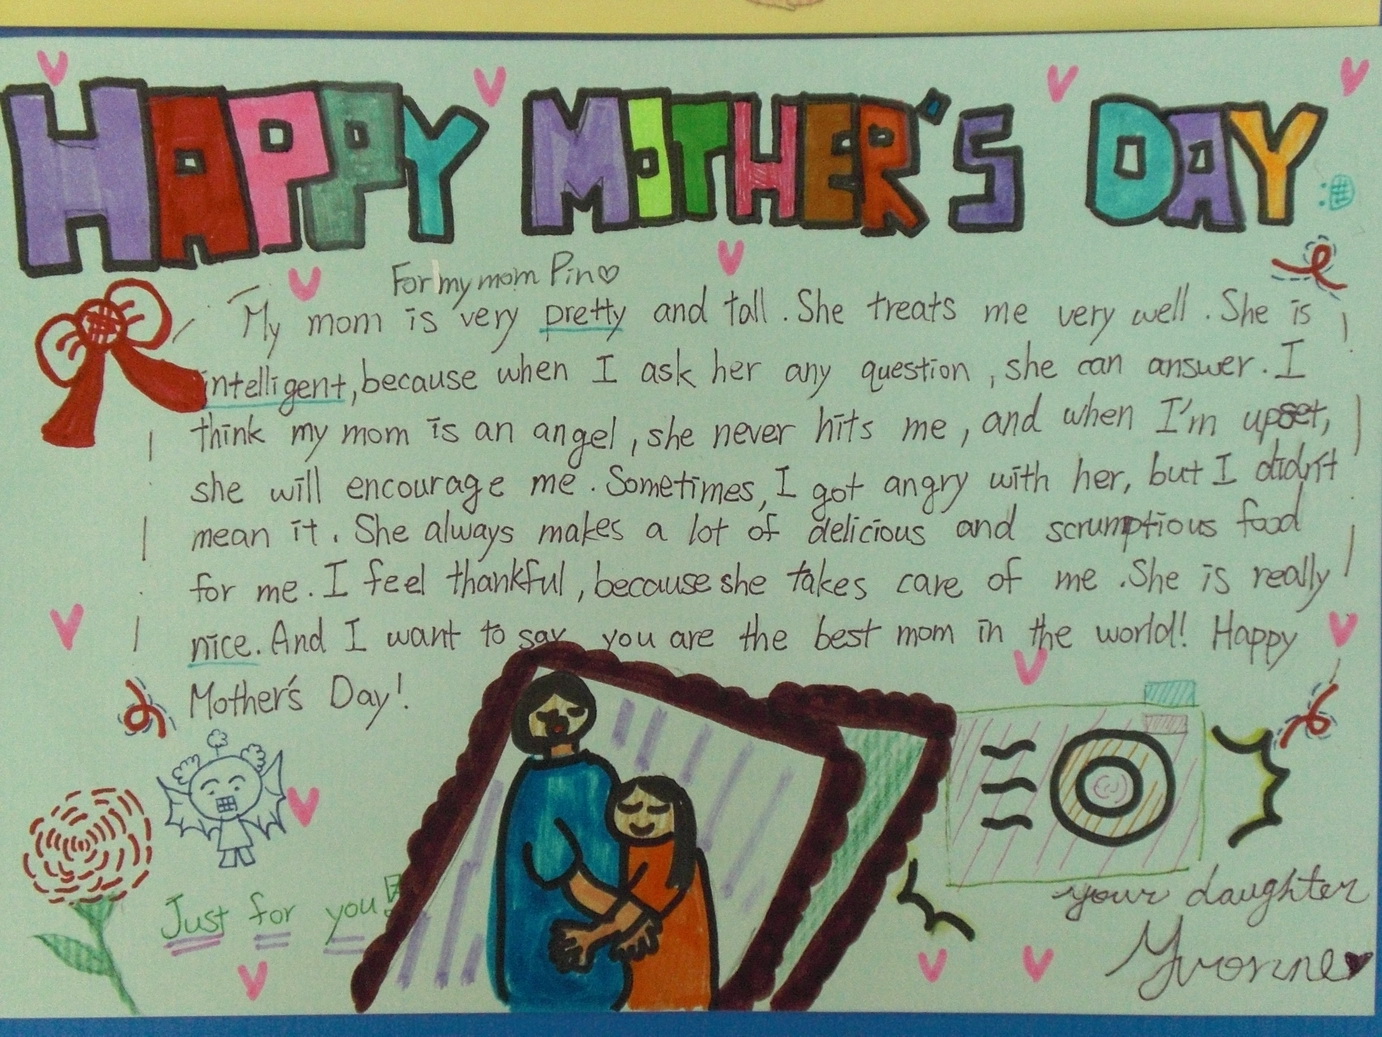 HAPPY MOTHER'S DAY
For my mom Pin♡
My mom is very pretty and tall. She treats me very well. She is
intelligent, because when I ask her any question, she can answer. I
think my mom is an angel, she never hits me, and when I'm upset,
she will encourage me. Sometimes, I got angry with her, but I didn't
mean it. She always makes a lot of delicious and scrumptious food
for me. I feel thankful, because she takes care of me. She is really
nice. And I want to say you are the best mom in the world! Happy
Mother's Day!
Just for you!
your daughter
Yvonne♥